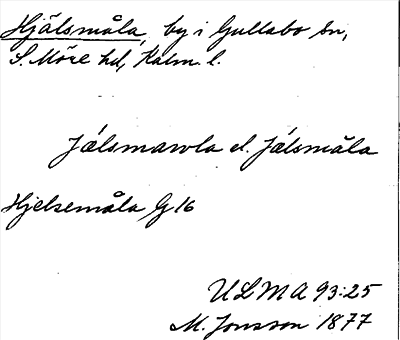 Hjälsmåla, by i Gullabo sn,
S. Möre hd, Kalm. l.
Jälsmawla el. Jälsmåla
Hjelsemåla G 16
ULMA 93:25
M. Jonsson 1877